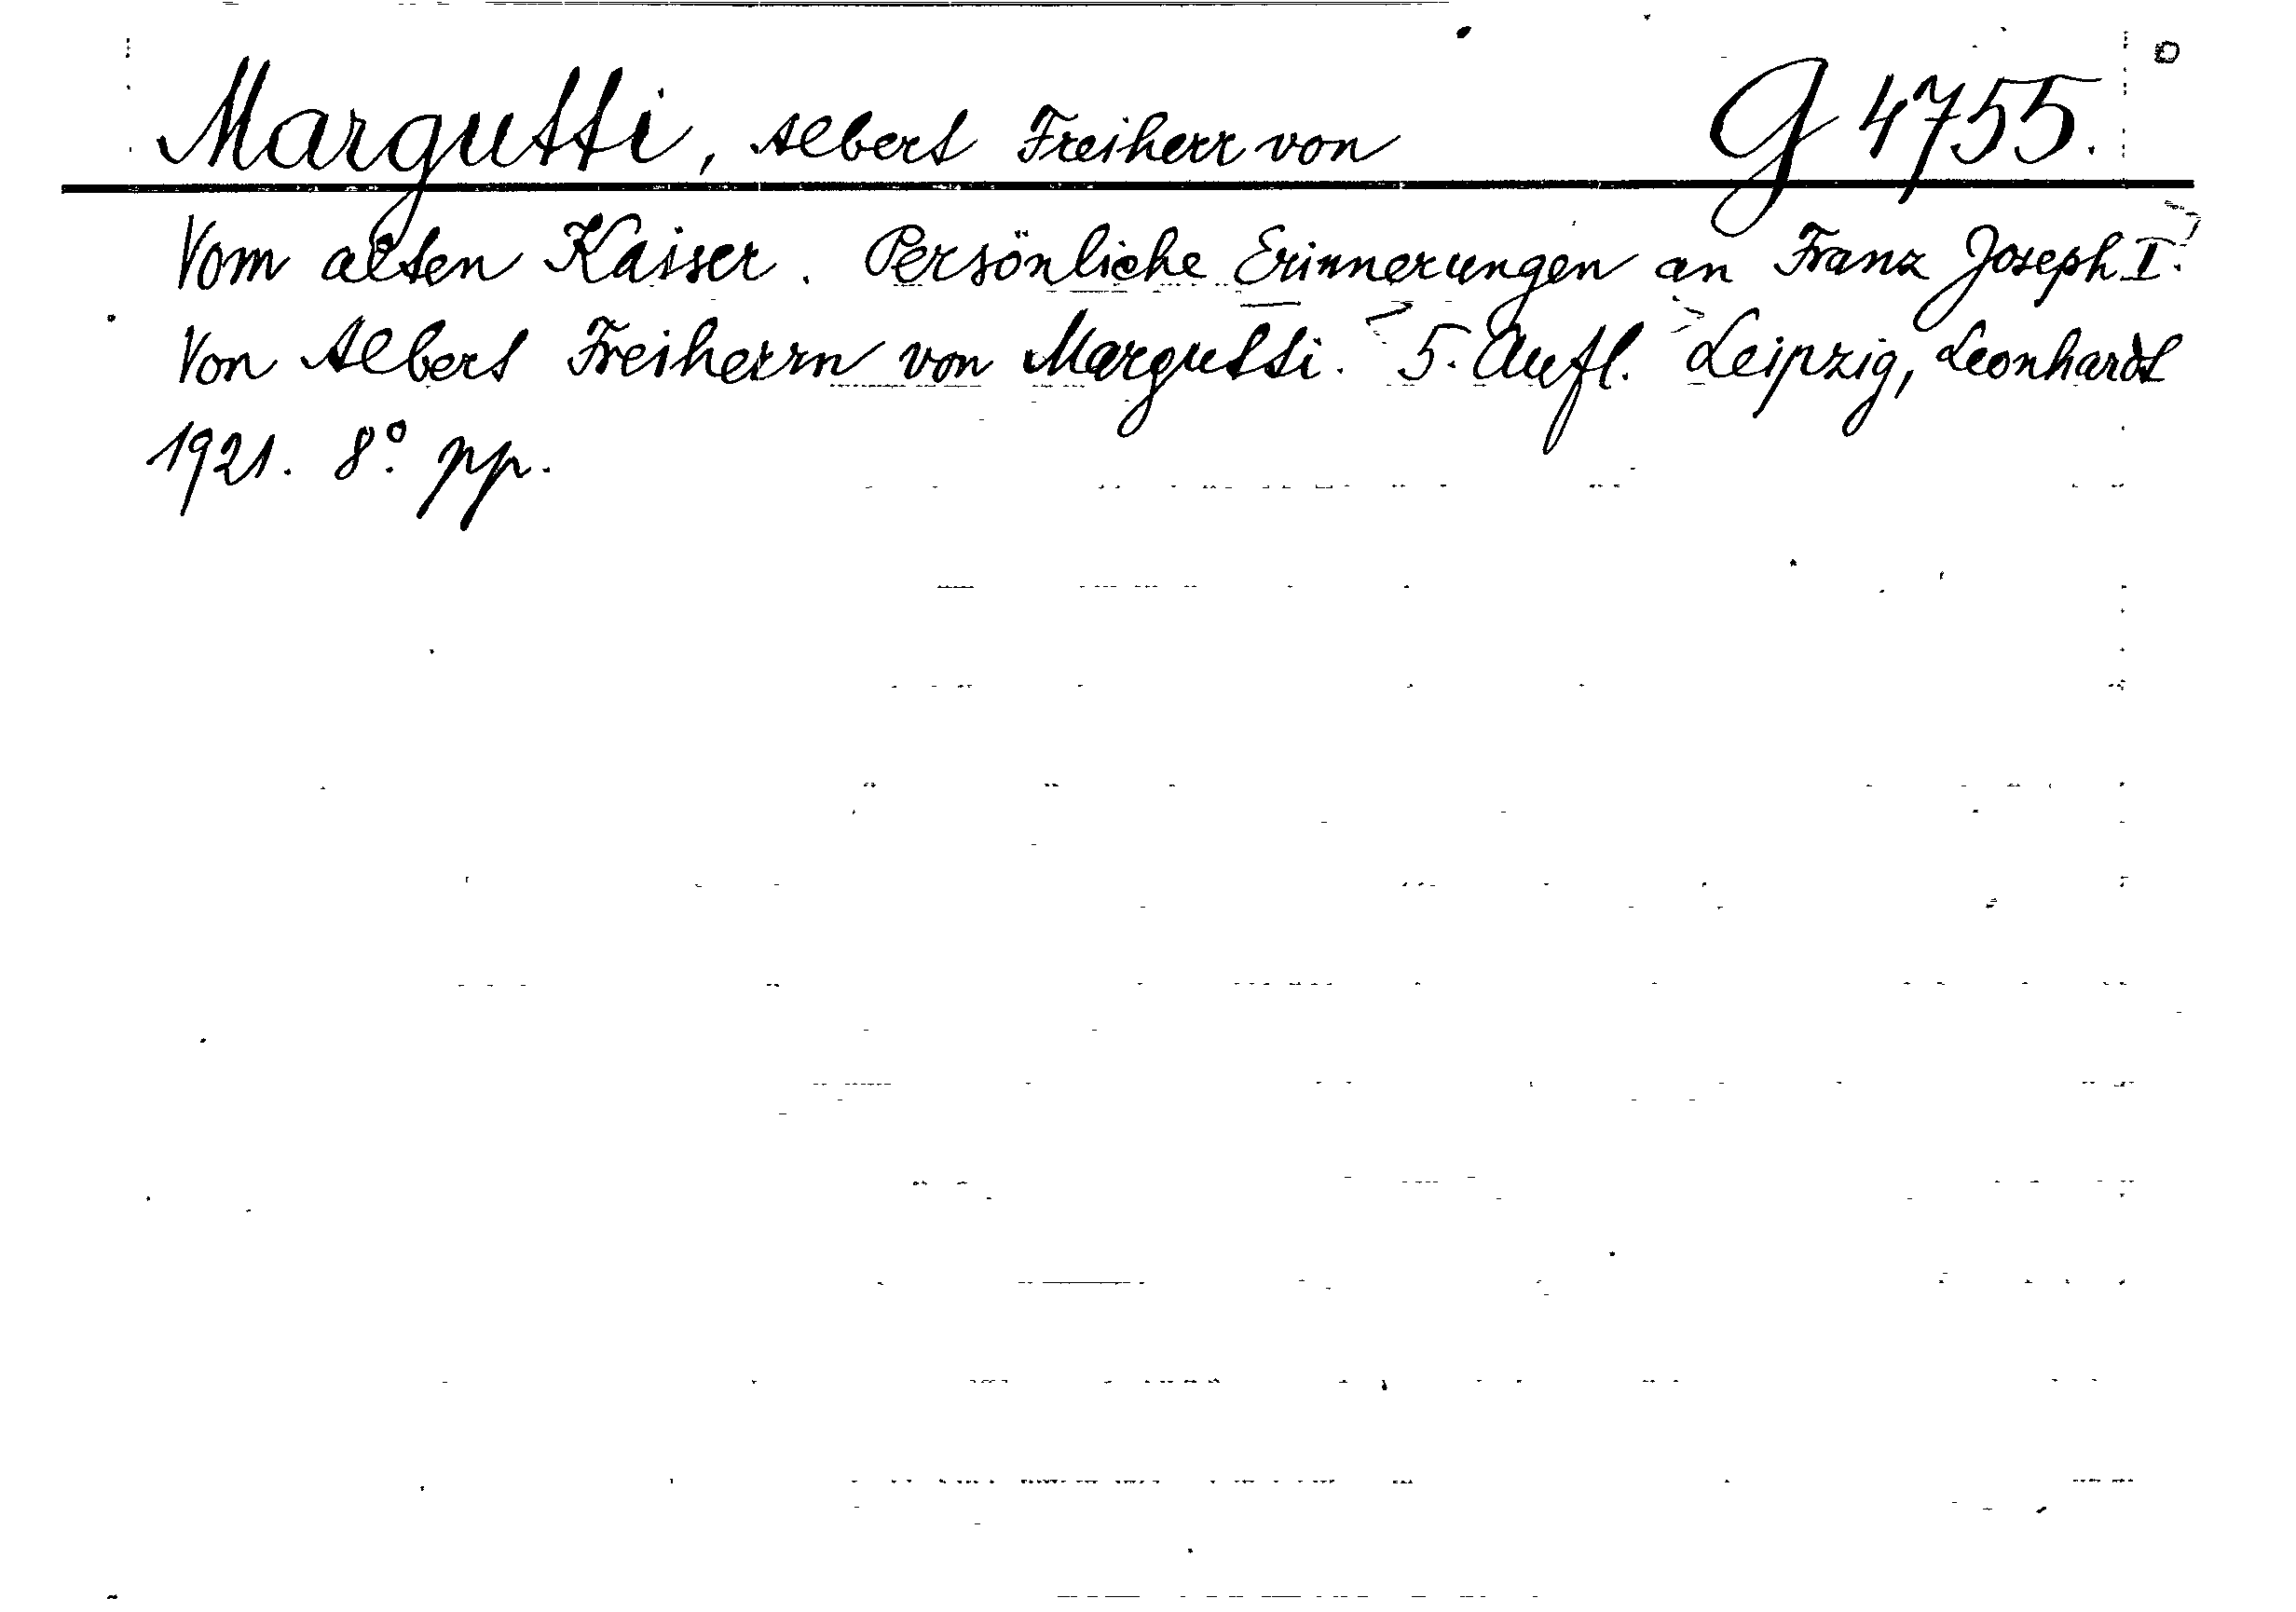 Margutti, Albert Freiherr von G 4755.
Vom alten Kaiser. Persönliche Erinnerungen an Franz Joseph I.
Von Albert Freiherrn von Margutti. 5. Aufl. Leipzig, Leonhardt
1921. 8°. pp.